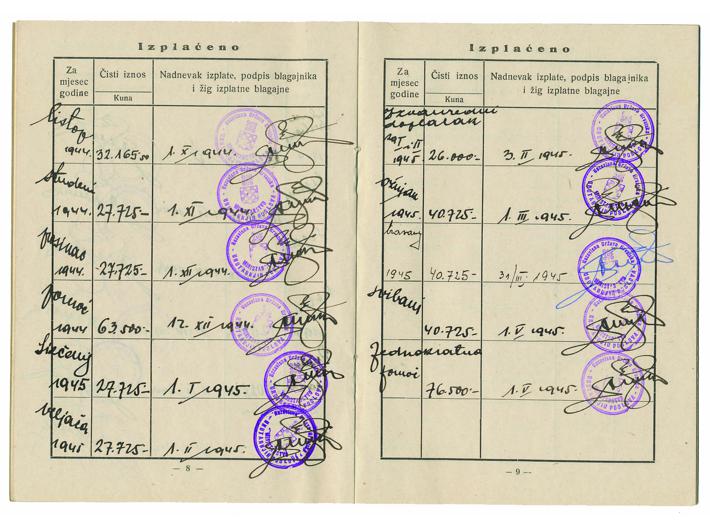 Izplaćeno
Za mjesec godine
Čisti iznos
Kuna
Nadnevak izplate, podpis blagajnika i žig izplatne blagajne
listop.
1944. 32.165.50 1. X 1944.
studeni
1944. 27.725- 1. XI 1944.
prosinac
1944. 27.725- 1. XII 1944.
pomoć
1944 63.500- 12. XII 1944.
Siečanj
1945 27.725- 1. I 1945.
veljača
1945 27.725- 1. II 1945.
— 8 —
Izplaćeno
Za mjesec godine
Čisti iznos
Kuna
Nadnevak izplate, podpis blagajnika i žig izplatne blagajne
Izvanredni
doplatak
1945. 26.000- 3. II 1945.
ožujak
1945. 40.725- 1. III 1945.
travanj
1945 40.725- 31/III 1945
svibanj
40.725- 1. V 1945.
Jednokratna
pomoć
76.500- 1. V 1945.
— 9 —